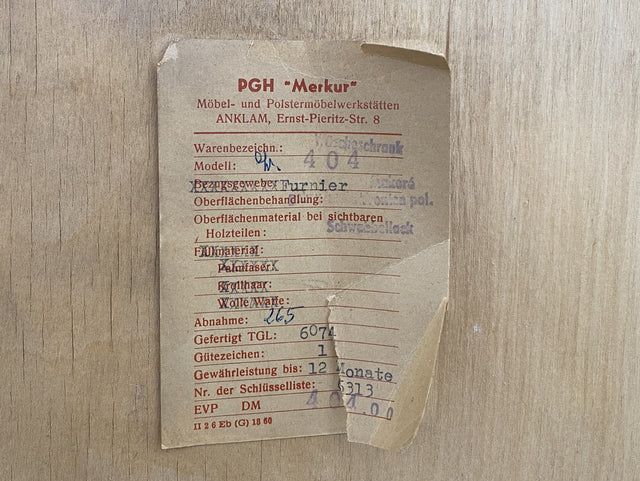 PGH "Merkur"
Möbel- und Polstermöbelwerkstätten
ANKLAM, Ernst-Pieritz-Str. 8
Warenbezeichn.:
Modell: 404
Bezugsgewebe: Furnier
Oberflächenbehandlung: pol.
Oberflächenmaterial bei sichtbaren
Holzteilen:
Füllmaterial:
Palmfaser:
Krollhaar:
Wolle Watte:
Abnahme: 265
Gefertigt TGL: 6074
Gütezeichen: 1
Gewährleistung bis: 12 Monate
Nr. der Schlüsselliste: 6313
EVP DM 404.00
II 2 6 Eb (G) 18 60